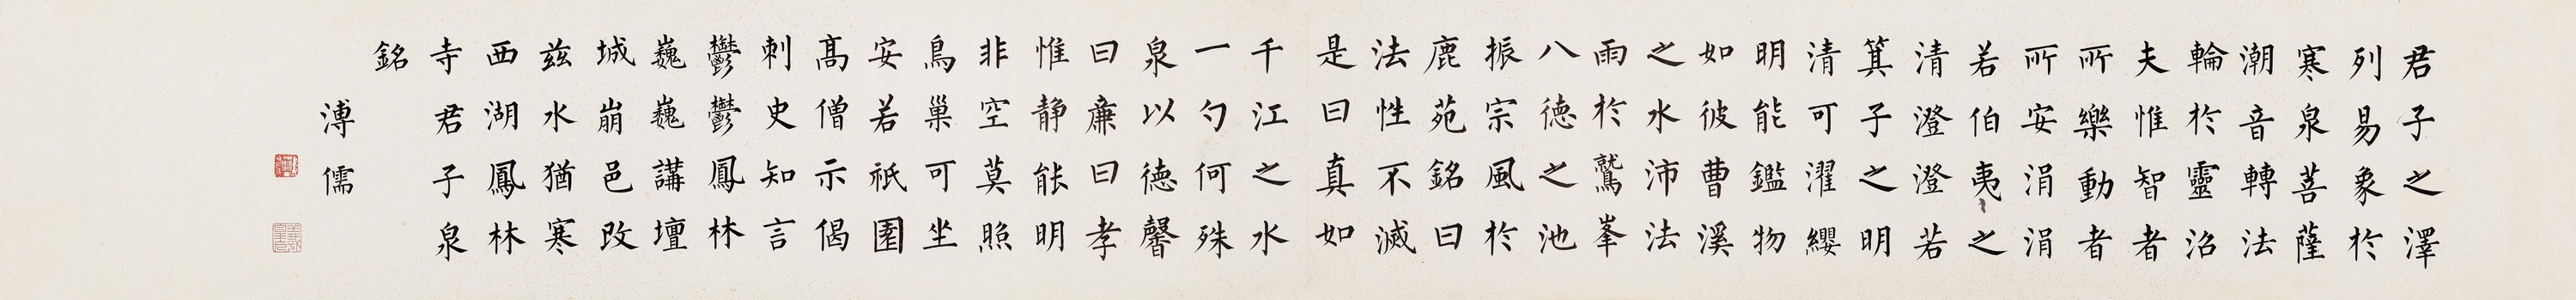 君子之澤
列易象於
寒泉菩薩
潮音轉法
輪於靈沼
夫惟智者
所樂動者
所安涓涓
若伯夷之
清澄澄若
箕子之明
清可濯纓
明能鑑物
如彼曹溪
之水沛法
雨於鷲峯
八德之池
振宗風於
鹿苑銘曰
法性不滅
是曰真如
千江之水
一勺何殊
泉以德馨
曰廉曰孝
惟静能明
非空莫照
鳥巢可坐
安若祇園
高僧示偈
刺史知言
鬱鬱鳳林
巍巍講壇
城崩邑改
兹水猶寒
西湖鳳林
寺君子泉
銘
溥儒